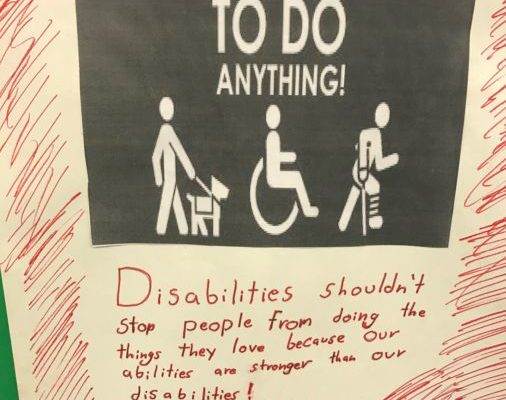 TO DO
ANYTHING!
Disabilities shouldn't
stop people from doing the
things they love because our
abilities are stronger than our
disabilities!